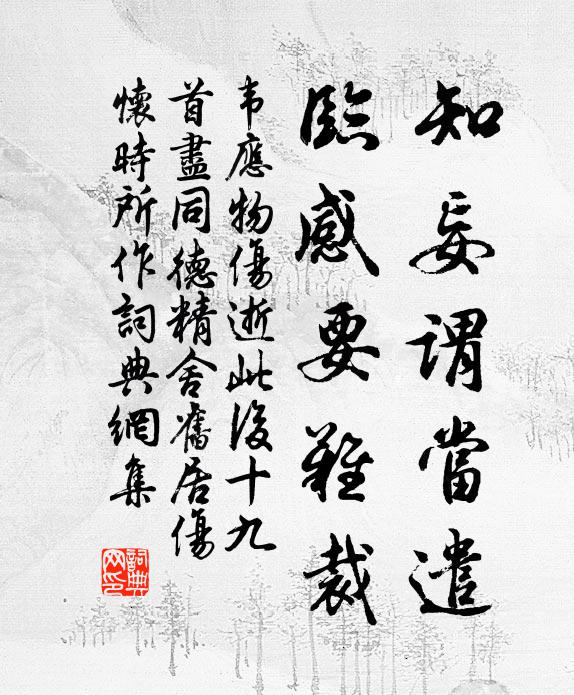 知妄謂當遣
臨感要難裁
韦應物傷逝此後十九
首盡同德精舍舊居傷
懷時所作詞典網集
詞典
网印